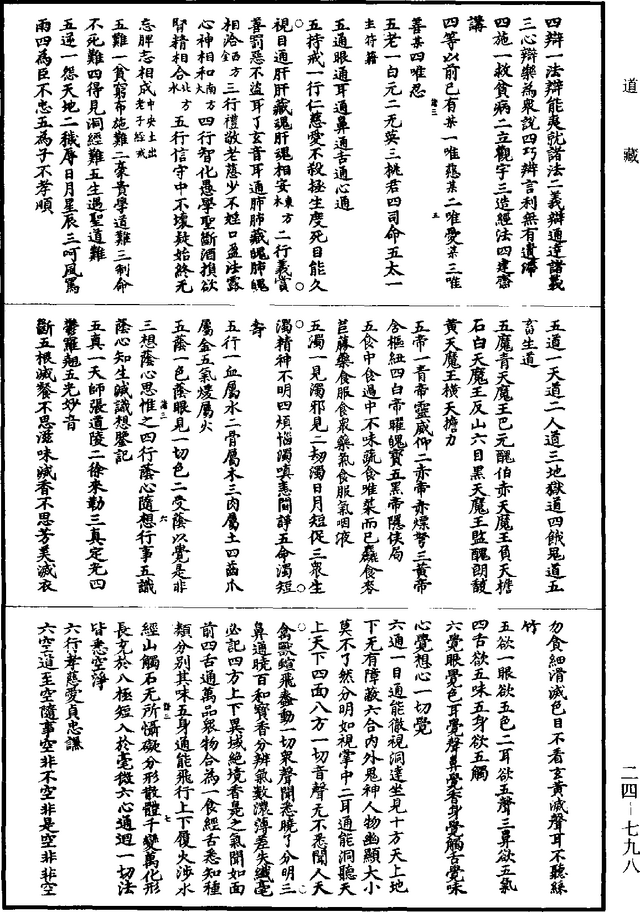 道藏
四辯一法辯能爽就諸法二義辯通達諸義
三心辯樂為眾說四巧辯言利無有遺滯
四施一救貧病二立觀宇三造經法四建齋
講
四等以前已有某一唯慈某二唯愛某三唯
善某四唯忍
五老一白元二无英三桃君四司命五太一
主符籍
五通眼通耳通鼻通舌通心通
五持戒一行仁慈愛不殺拯生度死目能久
視目通肝肝藏魂肝魂相安東方木二行義賞
善罰惡不盜耳了玄音耳通肺肺藏魄肺魄
相洽西方金三行禮敬老慈少不婬口盈法露
心神相和南方火四行智化愚學聖斷酒損欲
腎精相合北方水五行信守中不壞疑始終无
忘脾志相成中央土出老子經戒
五難一貧窮布施難二豪貴學道難三制命
不死難四得見洞經難五生遇聖道難
五逆一怨天地二穢辱日月星辰三呵風罵
雨四為臣不忠五為子不孝順
五道一天道二人道三地獄道四餓鬼道五
畜生道
五魔青天魔王巴元醜伯赤天魔王負天檐
石白天魔王反山六目黑天魔王監醜朗馥
黃天魔王橫天擔力
五帝一青帝靈威仰二赤帝赤熛弩三黃帝
含樞紐四白帝曜魄寶五黑帝隱侠局
五食中食過中不味蔬食唯菜而已麤食麥
苣藤藥食服食眾藥氣食服氣咽液
五濁一見濁邪見二劫濁日月短促三眾生
濁精神不明四煩惱濁嗔恚間諍五命濁短
壽
五行一血屬水二骨屬木三肉屬土四齒爪
屬金五氣煖屬火
五蔭一色蔭眼見一切色二受蔭以覺是非
三想蔭心思惟之四行蔭心隨想行事五識
蔭心知生滅識想鑒記
五真一天師張道陵二徐來勒三真定光四
鬱羅翹五光妙音
斷五根滅餐不思滋味滅香不思芳美滅衣
勿食細滑滅色目不看玄黃滅聲耳不聽絲
竹
五欲一眼欲五色二耳欲五聲三鼻欲五氣
四舌欲五味五身欲五觸
六覺眼覺色耳覺聲鼻覺香身覺觸舌覺味
心覺想心一切覺
六通一目通能徹視洞達坐見十方天上地
下无有障蔽六合內外鬼神人物幽顯大小
莫不了然分明如視掌中二耳通能洞聽天
上天下四面八方一切音聲无不悉聞人天
禽獸蜎飛蠢動一切眾聲聞悉曉了分明三
鼻通曉百和寶香分辨氣數濃薄差失纖毫
必記四方上下異域絕境香臭之氣聞如面
前四舌通萬品眾物合為一食經舌悉知種
類分別其味五身通能飛行上下履火涉水
經山觸石无所懾礙分形散體千變萬化形
長充於八極短入於毫微六心通迴一切法
皆悉空淨
六行孝慈愛貞忠謙
六空道至空隨事空非不空非是空非非空
二四—七九八